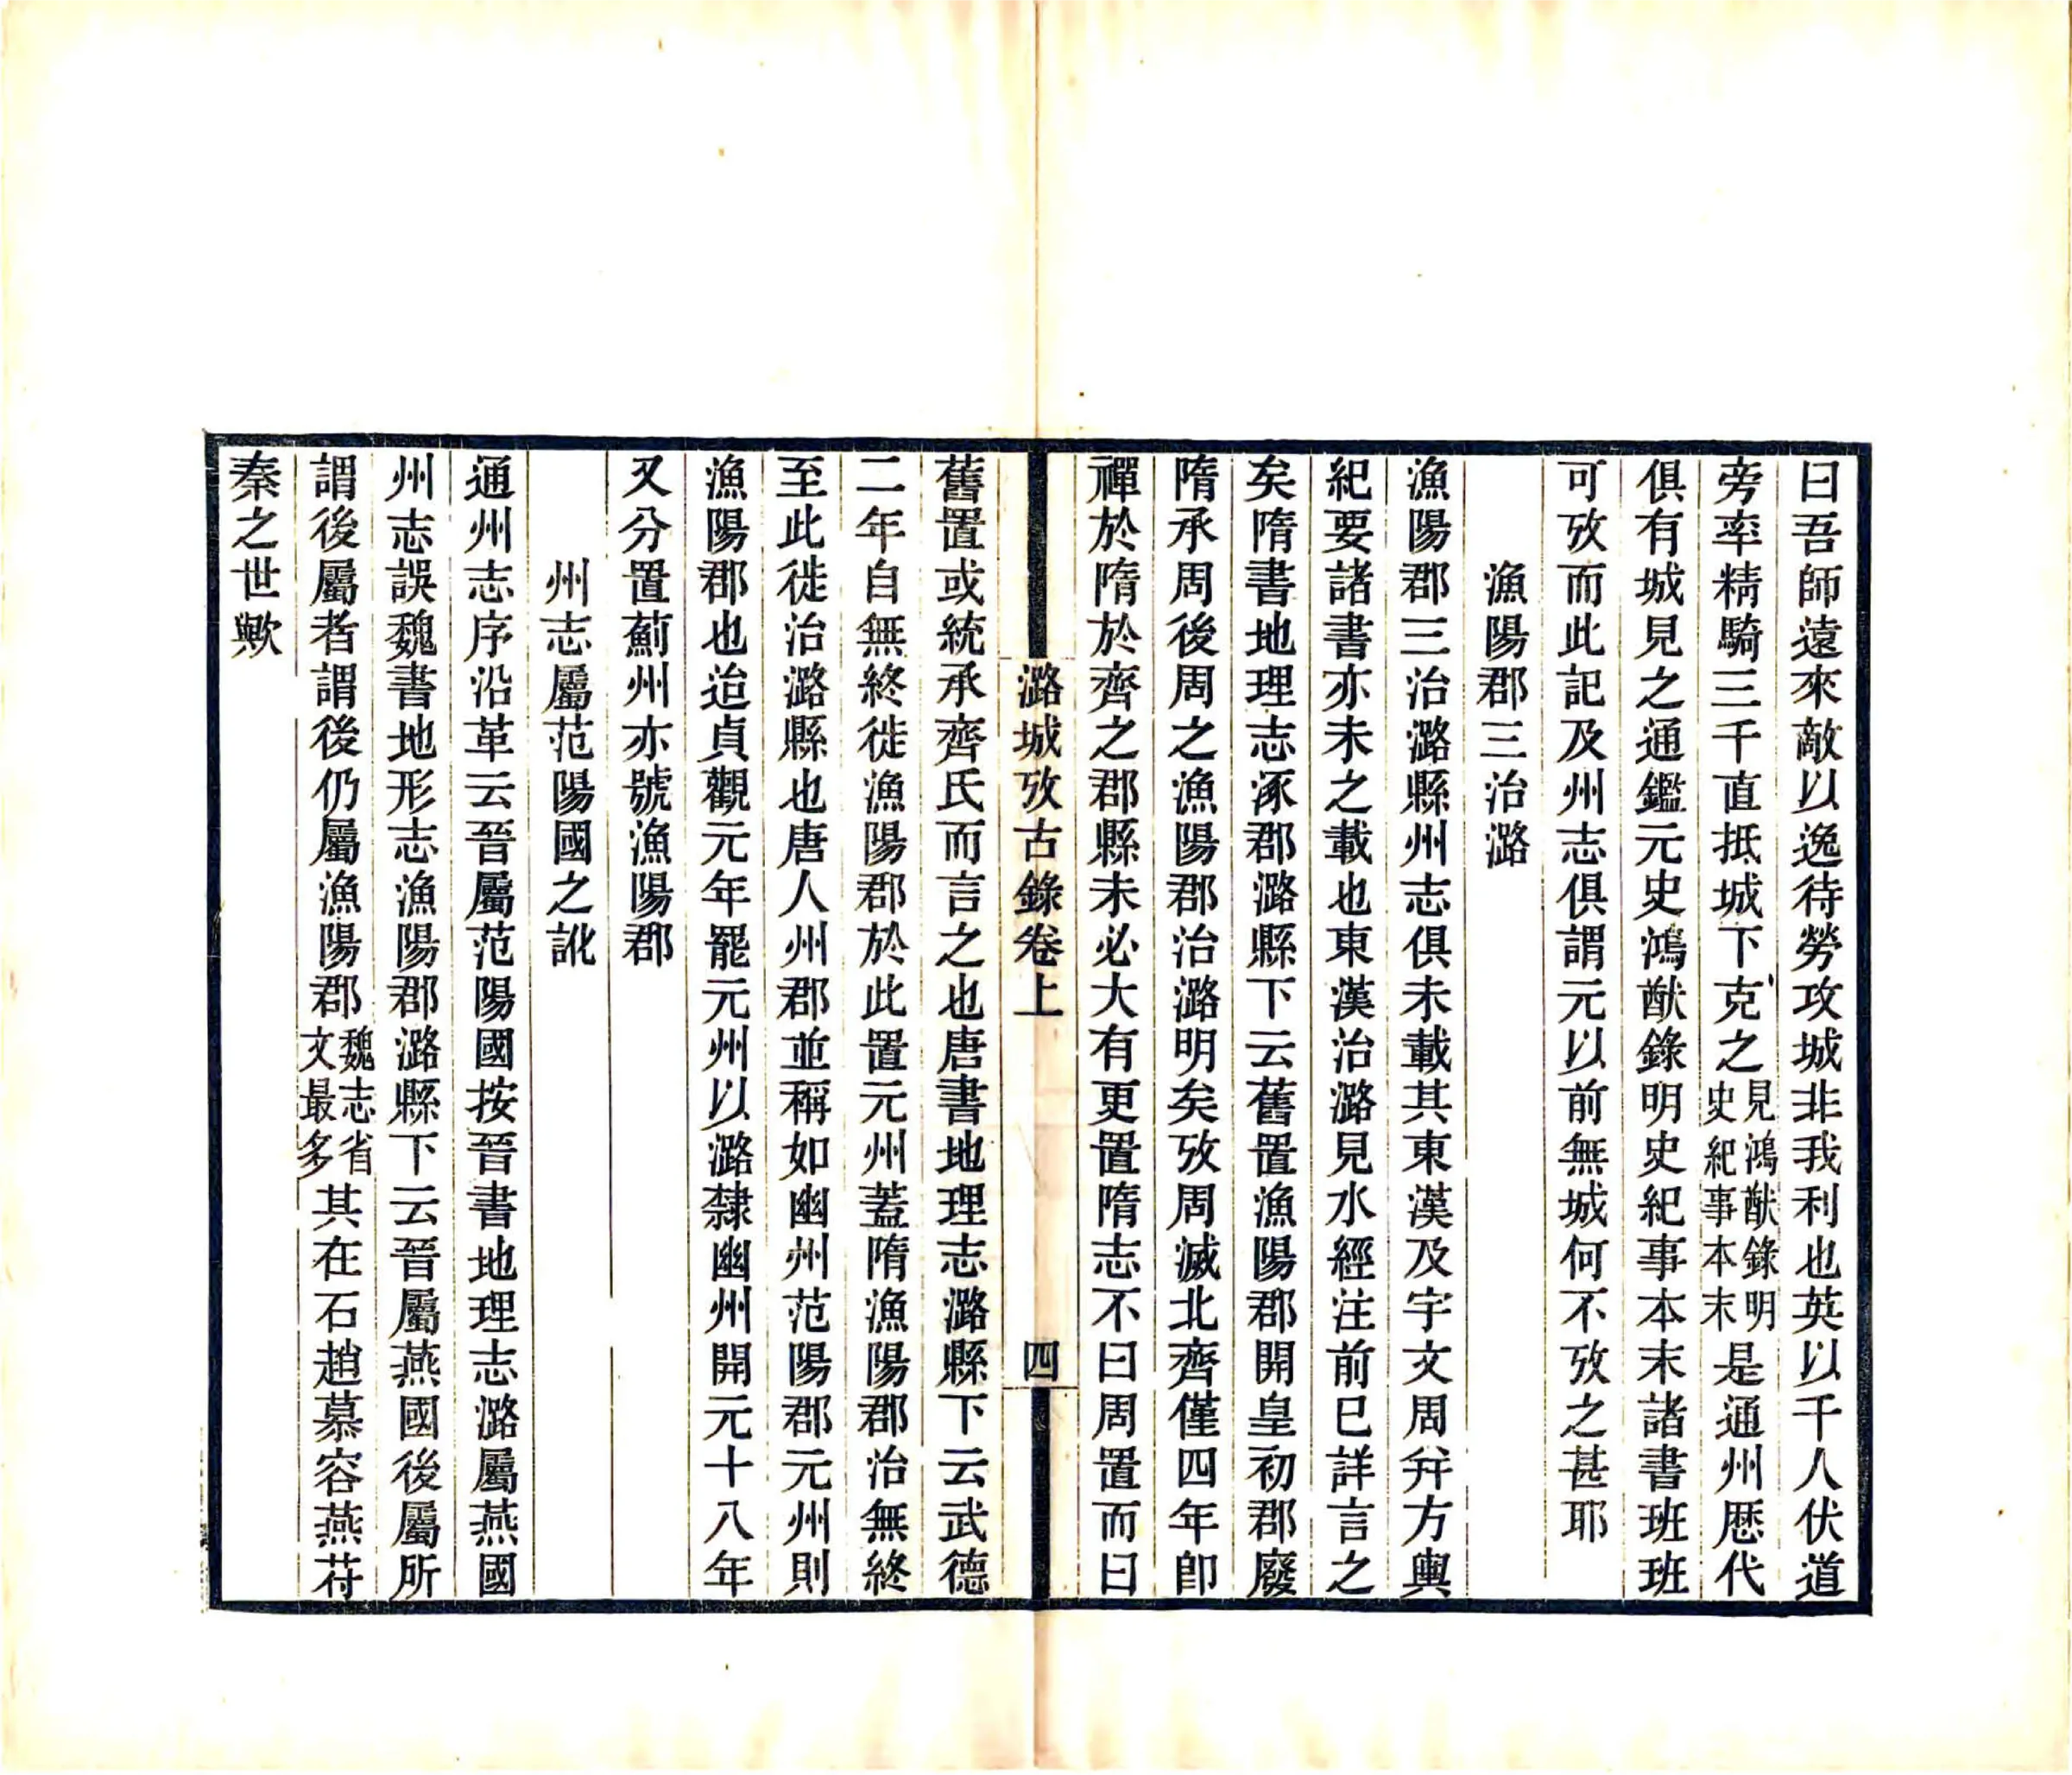 曰吾師遠來敵以逸待勞攻城非我利也英以千人伏道
旁率精騎三千直抵城下克之見鴻猷錄明史紀事本末是通州歷代
俱有城見之通鑑元史鴻猷錄明史紀事本末諸書班班
可攷而此記及州志俱謂元以前無城何不攷之甚耶
漁陽郡三治潞
漁陽郡三治潞縣州志俱未載其東漢及宇文周幷方輿
紀要諸書亦未之載也東漢治潞見水經注前已詳言之
矣隋書地理志涿郡潞縣下云舊置漁陽郡開皇初郡廢
隋承周後周之漁陽郡治潞明矣攷周滅北齊僅四年卽
禪於隋於齊之郡縣未必大有更置隋志不曰周置而曰
潞城攷古錄卷上 四
舊置或統承齊氏而言之也唐書地理志潞縣下云武德
二年自無終徙漁陽郡於此置元州蓋隋漁陽郡治無終
至此徙治潞縣也唐人州郡並稱如幽州范陽郡元州則
漁陽郡也迨貞觀元年罷元州以潞隸幽州開元十八年
又分置薊州亦號漁陽郡
州志屬范陽國之訛
通州志序沿革云晉屬范陽國按晉書地理志潞屬燕國
州志誤魏書地形志漁陽郡潞縣下云晉屬燕國後屬所
謂後屬者謂後仍屬漁陽郡魏志省文最多其在石趙慕容燕苻
秦之世歟